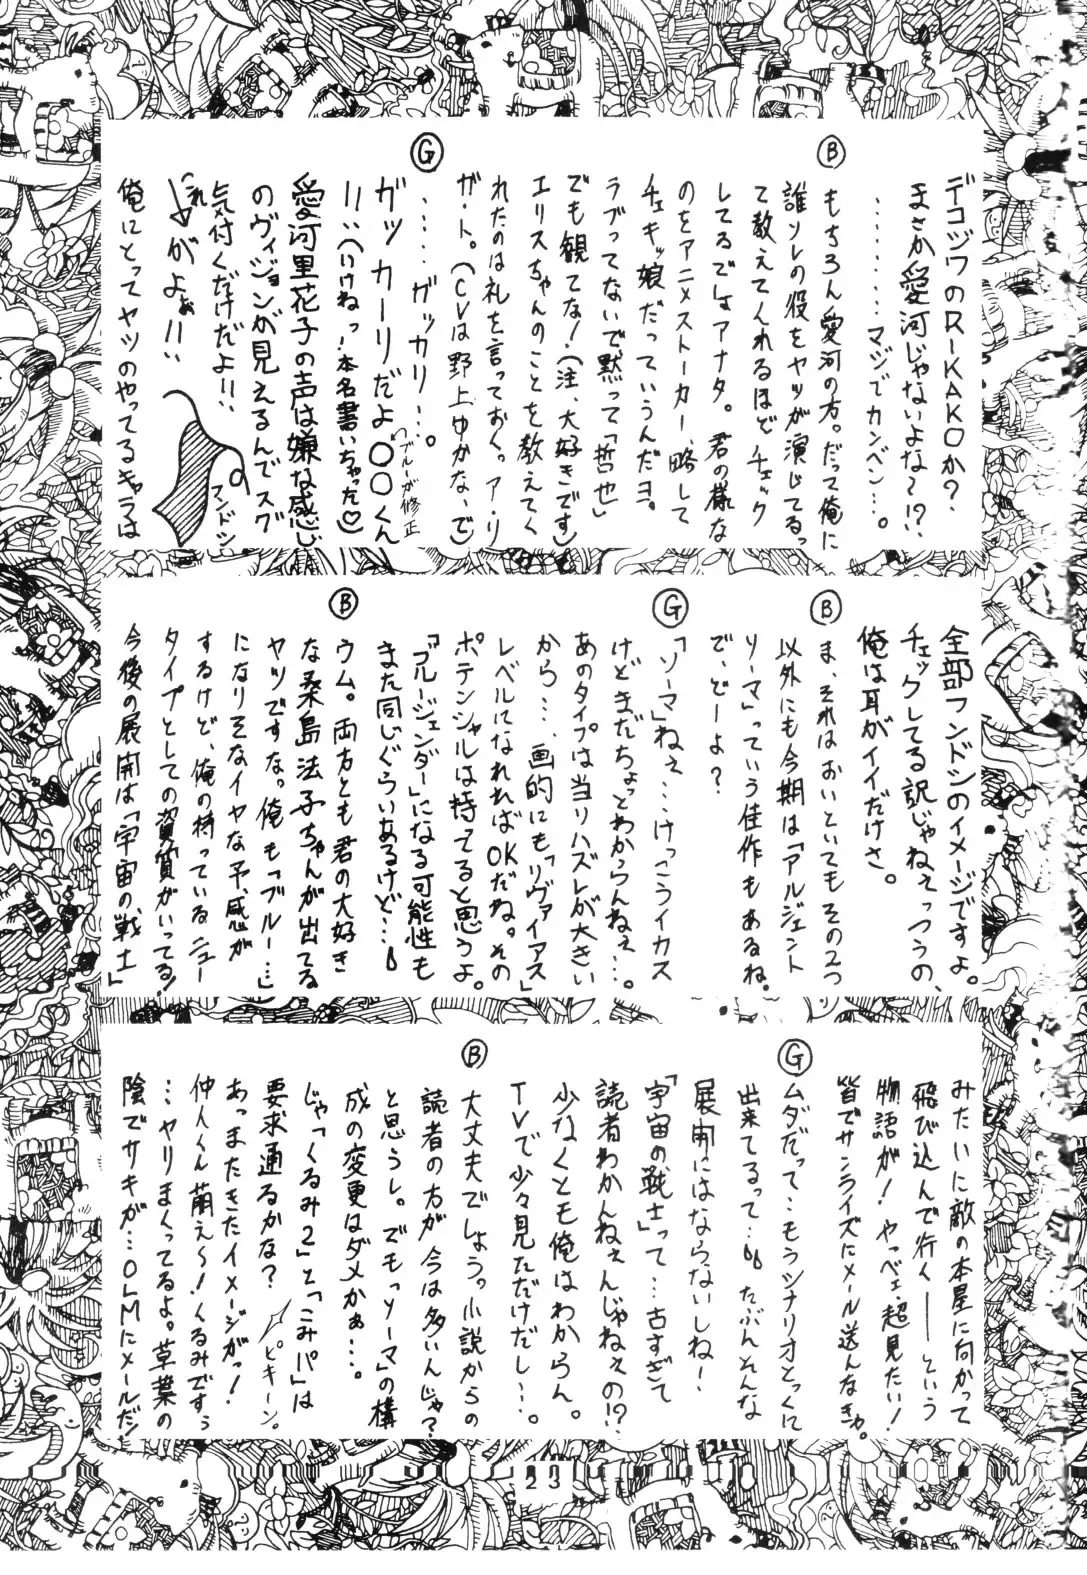 デコジワのRIKAKOか？
まさか愛河じゃないよな〜!?
………マジでカンベン…。
Ⓑ
もちろん愛河の方。だって俺に
誰ソレの役をヤツが演じてるっ
て教えてくれるほどチェック
してるでしょアナタ。君の様な
のをアニメストーカー、略して
チェキッ娘だっていうんだヨ。
ラブってないで黙って「哲也」
でも観てな！（注、大好きです）
エリスちゃんのことを教えてく
れたのは礼を言っておく。ア・リ・
ガ・ト。（CVは野上ゆかな、で）
Ⓖ
……ガッカリ…。
ガッカーリだよ○○くん
!!（いけねっ！本名書いちゃった♡）
ブルーが修正
愛河里花子の声は嫌な感じ
のヴィジョンが見えるんでスグ
気付くだけだよ!!
これ
がよぉ!!
フンドシ
俺にとってヤツのやってるキャラは
全部フンドシのイメージですよ。
チェックしてる訳じゃねぇっつうの、
俺は耳がイイだけさ。
Ⓑ
ま、それはおいといてもその2つ
以外にも今期は「アルジェント
ソーマ」っていう佳作もあるね。
で、どーよ？
Ⓖ
「ソーマ」ねぇ…けっこうイカス
けどまだちょっとわからんねぇ…。
あのタイプは当りハズレが大きい
から…画的にも「リヴァイアス」
レベルになれればOKだね。その
ポテンシャルは持ってると思うよ。
「ブルージェンダー」になる可能性も
また同じぐらいあるけど…
Ⓑ
ウム。両方とも君の大好き
な桑島法子ちゃんが出てる
ヤツですな。俺も「ブルー…」
になりそなイヤな予感が
するけど、俺の持っているニュー
タイプとしての資質がいってる！
今後の展開は「宇宙の戦士」
みたいに敵の本星に向かって
飛び込んで行く――という
物語が！やっべェ超見たい！
皆でサンライズにメール送んなきゃ。
Ⓖ
ムダだって…もうシナリオとっくに
出来てるって…たぶんそんな
展開にはならないしねー
「宇宙の戦士」って…古すぎて
読者わかんねぇんじゃねぇの!?
少なくとも俺はわからん。
TVで少々見ただけだし…。
Ⓑ
大丈夫でしょう。小説からの
読者の方が今は多いんじゃ？
と思うし。でも「ソーマ」の構
成の変更はダメかぁ…。
じゃ「くるみ2」と「こみパ」は
要求通るかな？
ピキーン。
あっまたきたイメージがっ！
仲人くん萌え〜！くるみですぅ
…ヤリまくってるよ。草葉の
陰でサキが…OLMにメールだシ
23